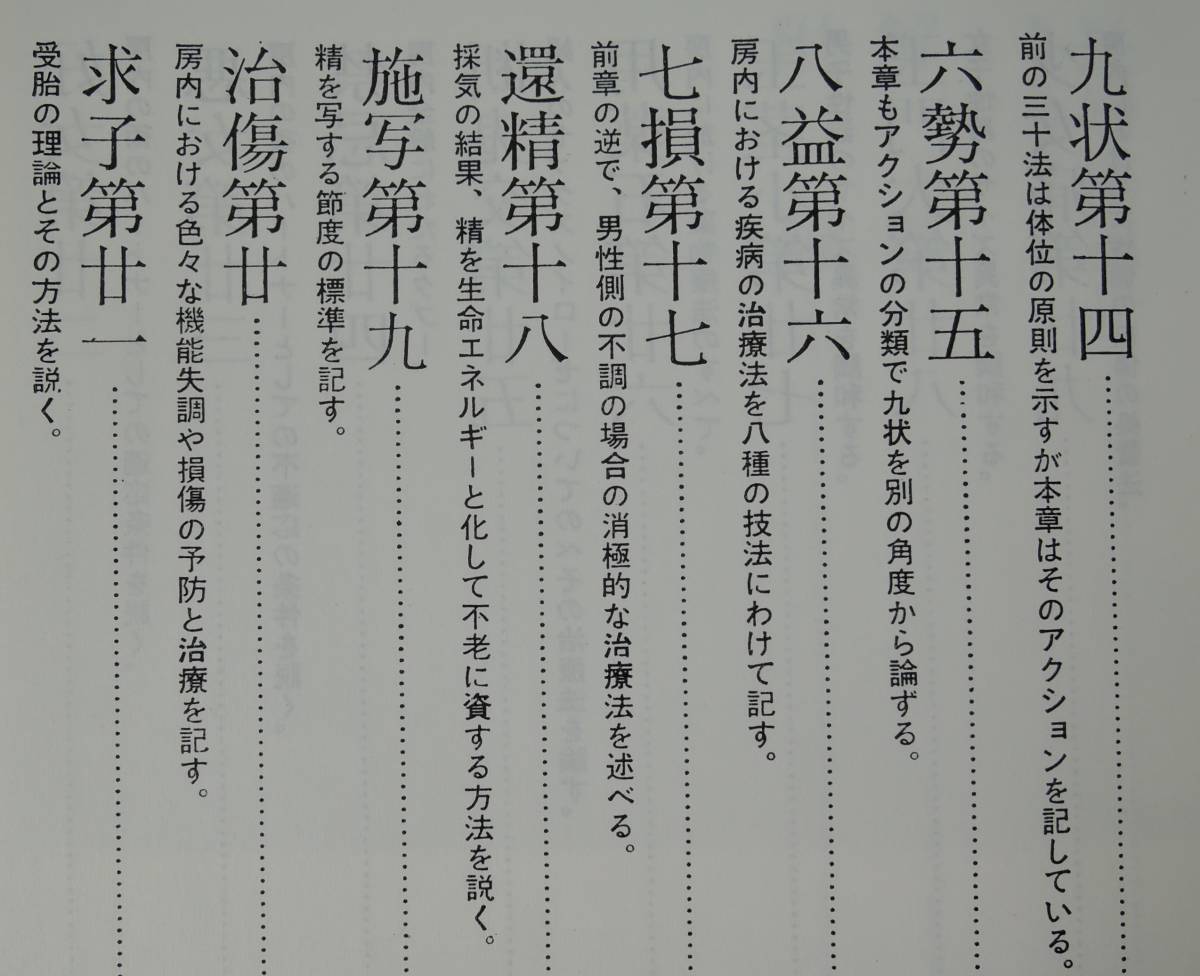 九状第十四
前の三十法は体位の原則を示すが本章はそのアクションを記している。
六勢第十五
本章もアクションの分類で九状を別の角度から論ずる。
八益第十六
房内における疾病の治療法を八種の技法にわけて記す。
七損第十七
前章の逆で、男性側の不調の場合の消極的な治療法を述べる。
還精第十八
採気の結果、精を生命エネルギーと化して不老に資する方法を説く。
施写第十九
精を写する節度の標準を記す。
治傷第廿
房内における色々な機能失調や損傷の予防と治療を記す。
求子第廿一
受胎の理論とその方法を説く。